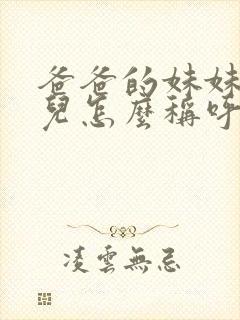 爸爸的妹妹
兒怎麼稱呼
凌雲無忌